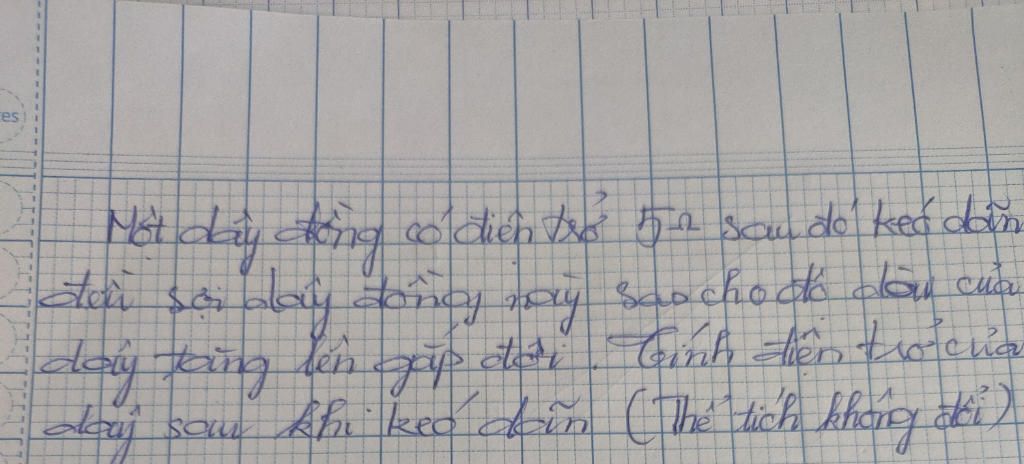 es
Một dây đồng có điện trở 5Ω sau đó kéo dãn
đều sợi dây đồng này sao cho độ dài của
dây tăng lên gấp đôi. Tính điện trở của
dây sau khi kéo dãn (Thể tích không đổi)